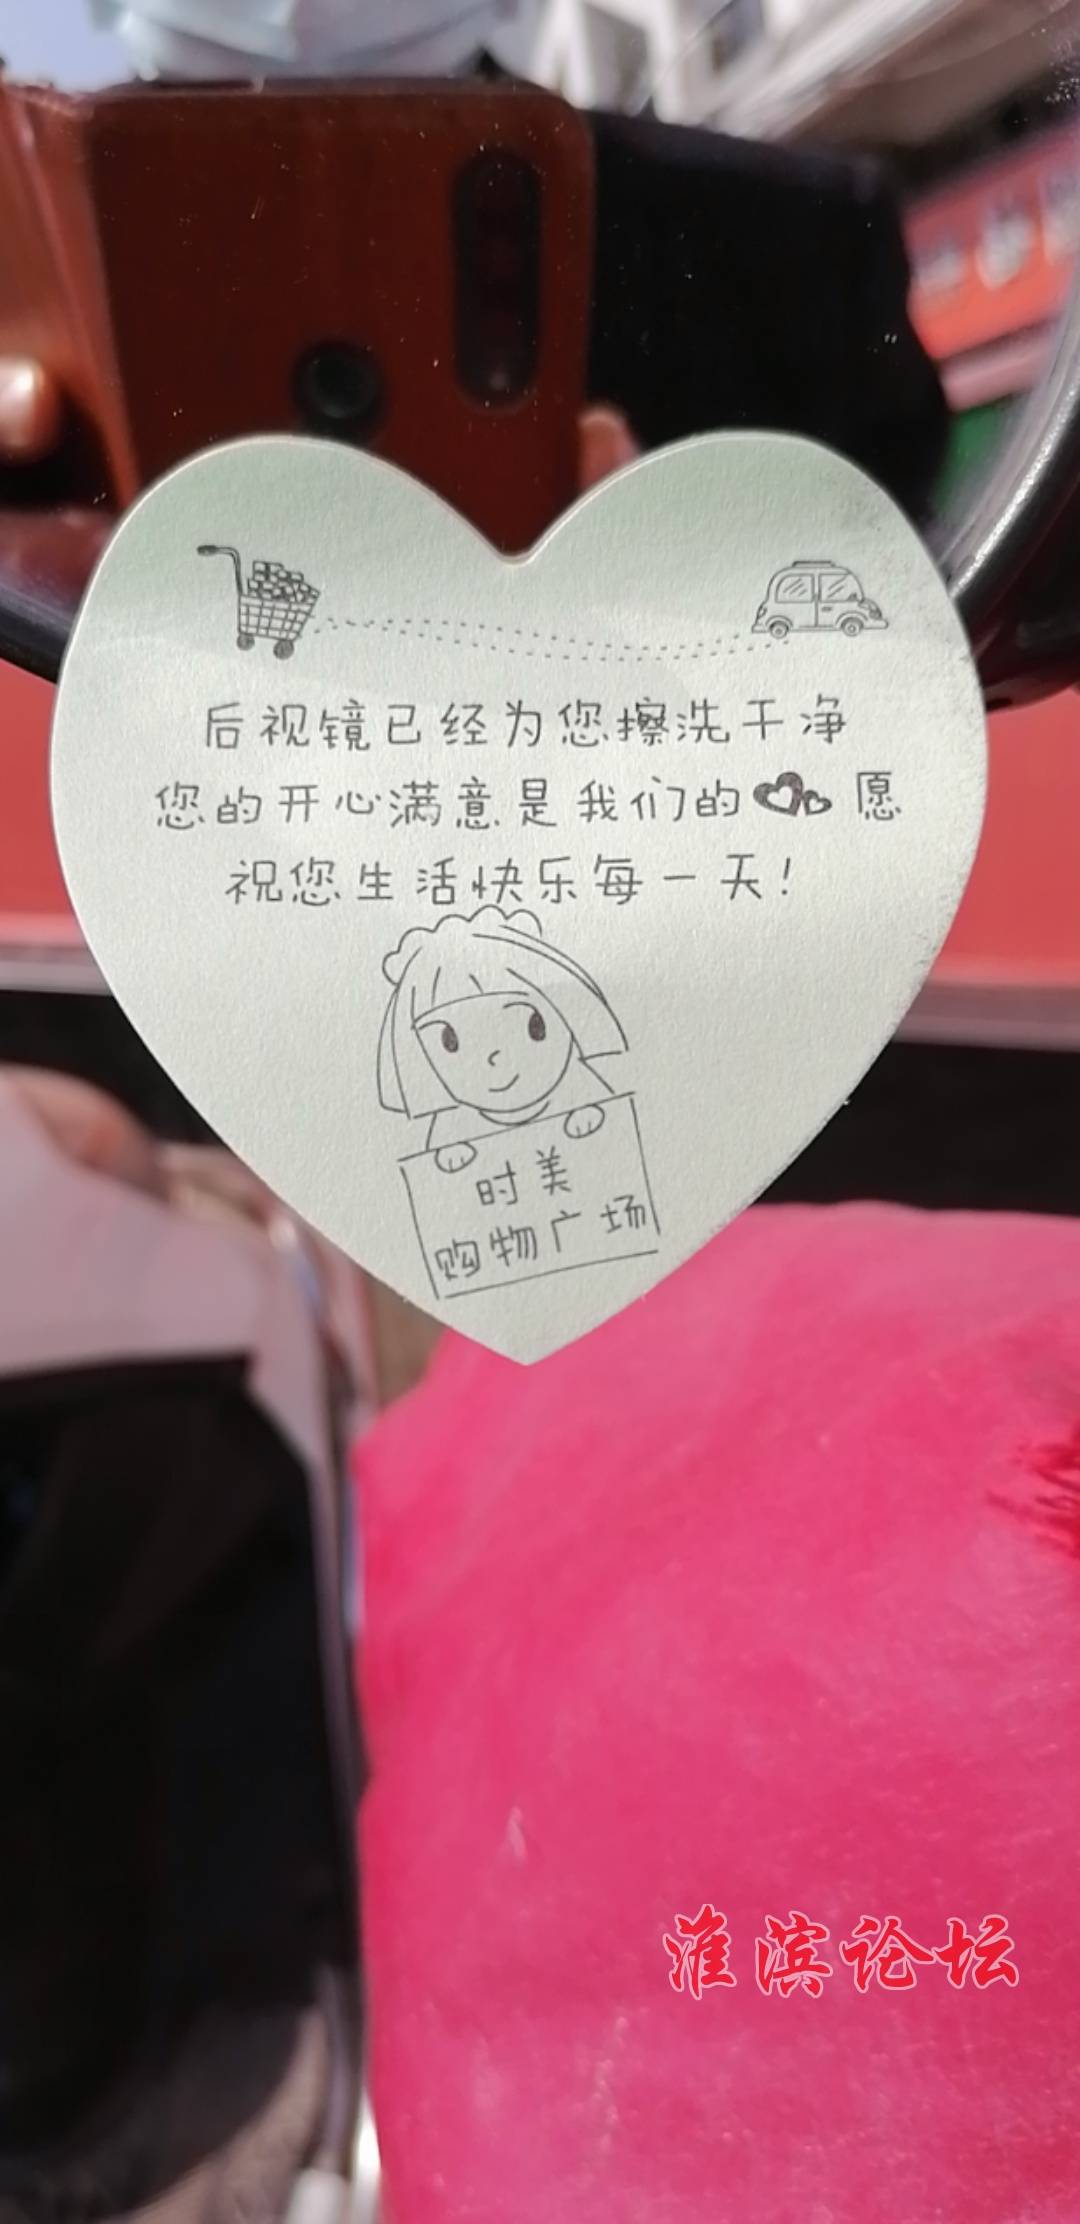 后视镜已经为您擦洗干净
您的开心满意是我们的愿
祝您生活快乐每一天！
时美
购物广场
淮滨论坛